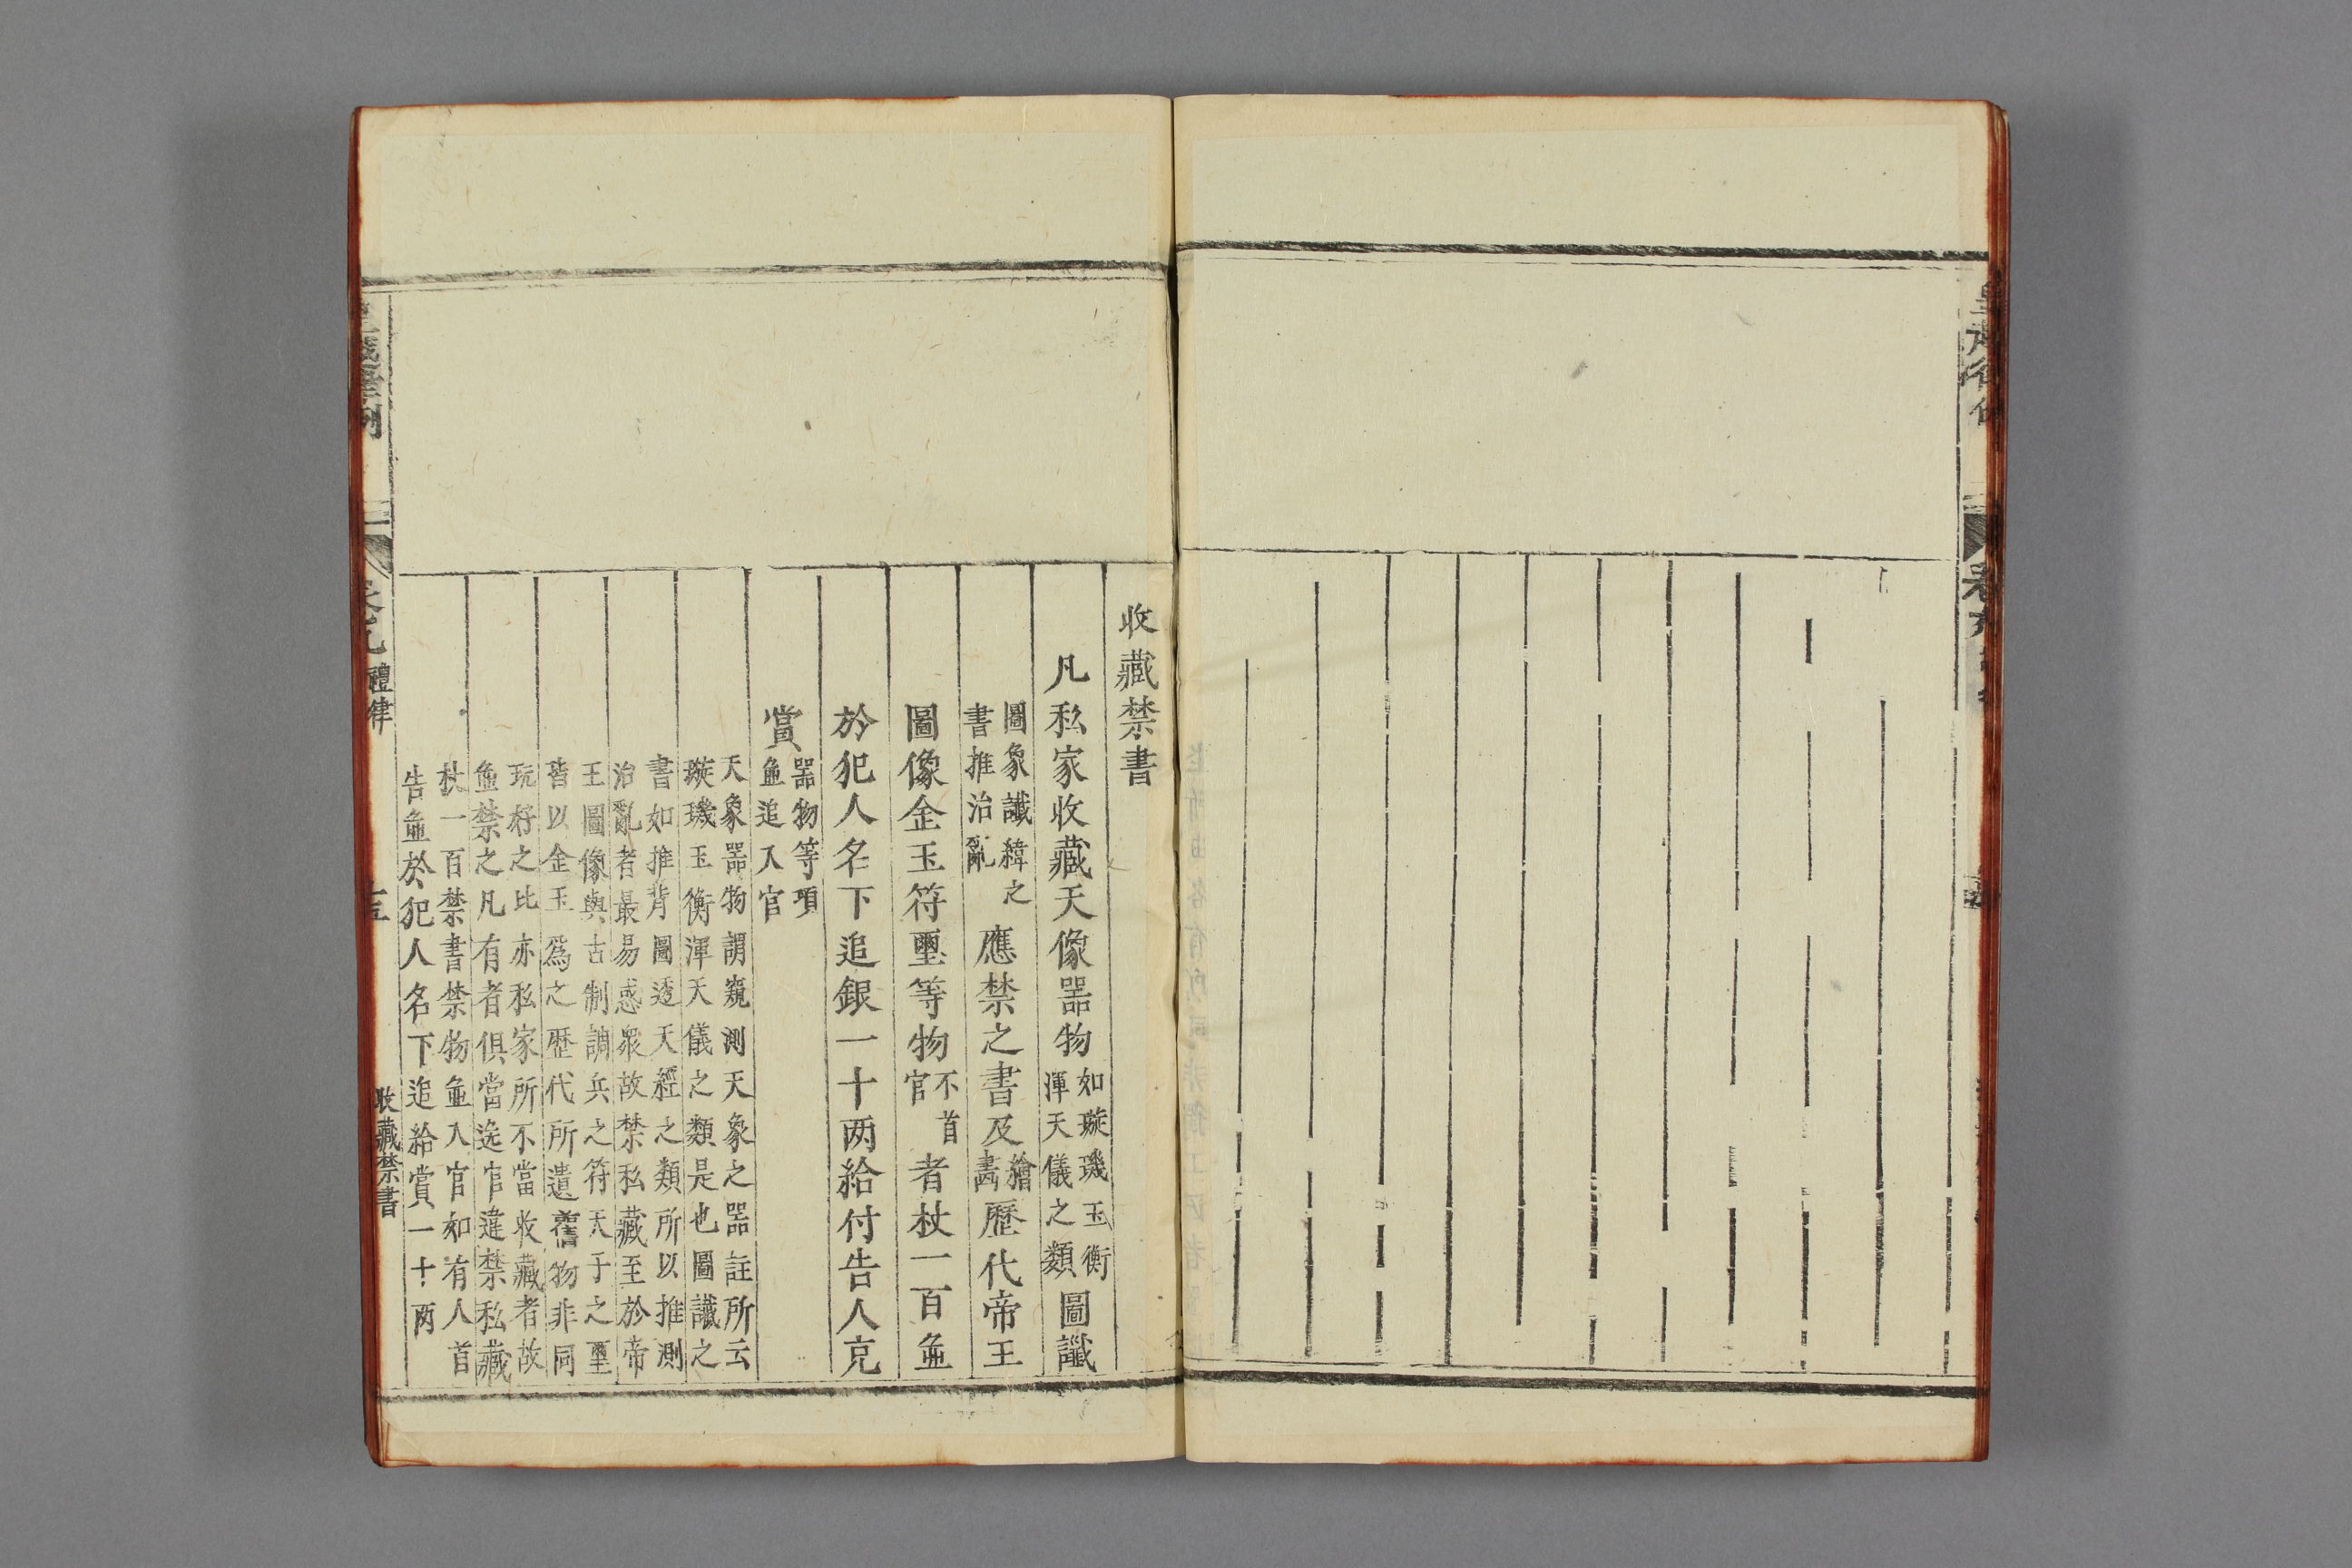 收藏禁書
凡私家收藏天像噐物如璇璣玉衡渾天儀之類圖讖
圖象讖緯之書推治亂應禁之書及繪畵歷代帝王
圖像金玉符璽等物不首官者杖一百並
於犯人名下追銀一十两給付告人充
賞噐物等項並追入官
天象噐物謂窺測天象之噐註所云
璇璣玉衡渾天儀之類是也圖讖之
書如推背圖透天經之類所以推測
治亂者最易惑衆故禁私藏至於帝
王圖像與古制調兵之符天子之璽
皆以金玉爲之歷代所遺舊物非同
玩好之比亦私家所不當收藏者故
並禁之凡有者俱當送官違禁私藏
杖一百禁書禁物並入官如有人首
告並於犯人名下追給賞一十两
律例
禮律
十五
收藏禁書